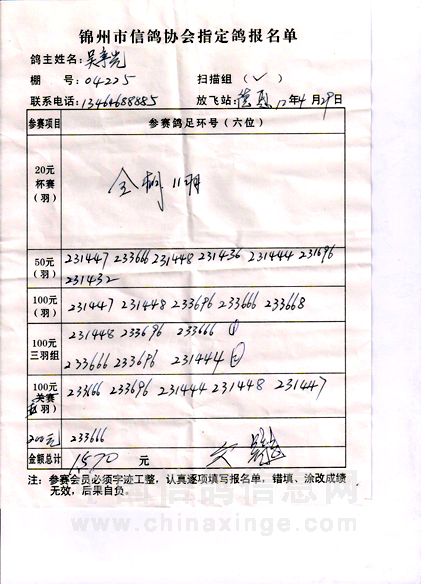 锦州市信鸽协会指定鸽报名单
鸽主姓名:
棚 号: 04225 扫描组(✓)
联系电话: 13464688885 放飞站: 12年4月29日
参赛项目 参赛鸽足环号(六位)
20元
杯赛
(羽)
全棚 11羽
50元
(羽)
231447 233666 231448 231436 231444 231696
231432
100元
(羽)
231447 231448 233696 233666 233668
100元
三羽组
231448 233696 233666 ①
233666 233696 231444 ②
100元
关赛
(羽)
233666 233696 231444 231448 231447
200元 233666
金额总计 1570 元
注:参赛会员必须字迹工整,认真逐项填写报名单,错填、涂改成绩
无效,后果自负。
中国信鸽信息网
www.chinaxinge.com